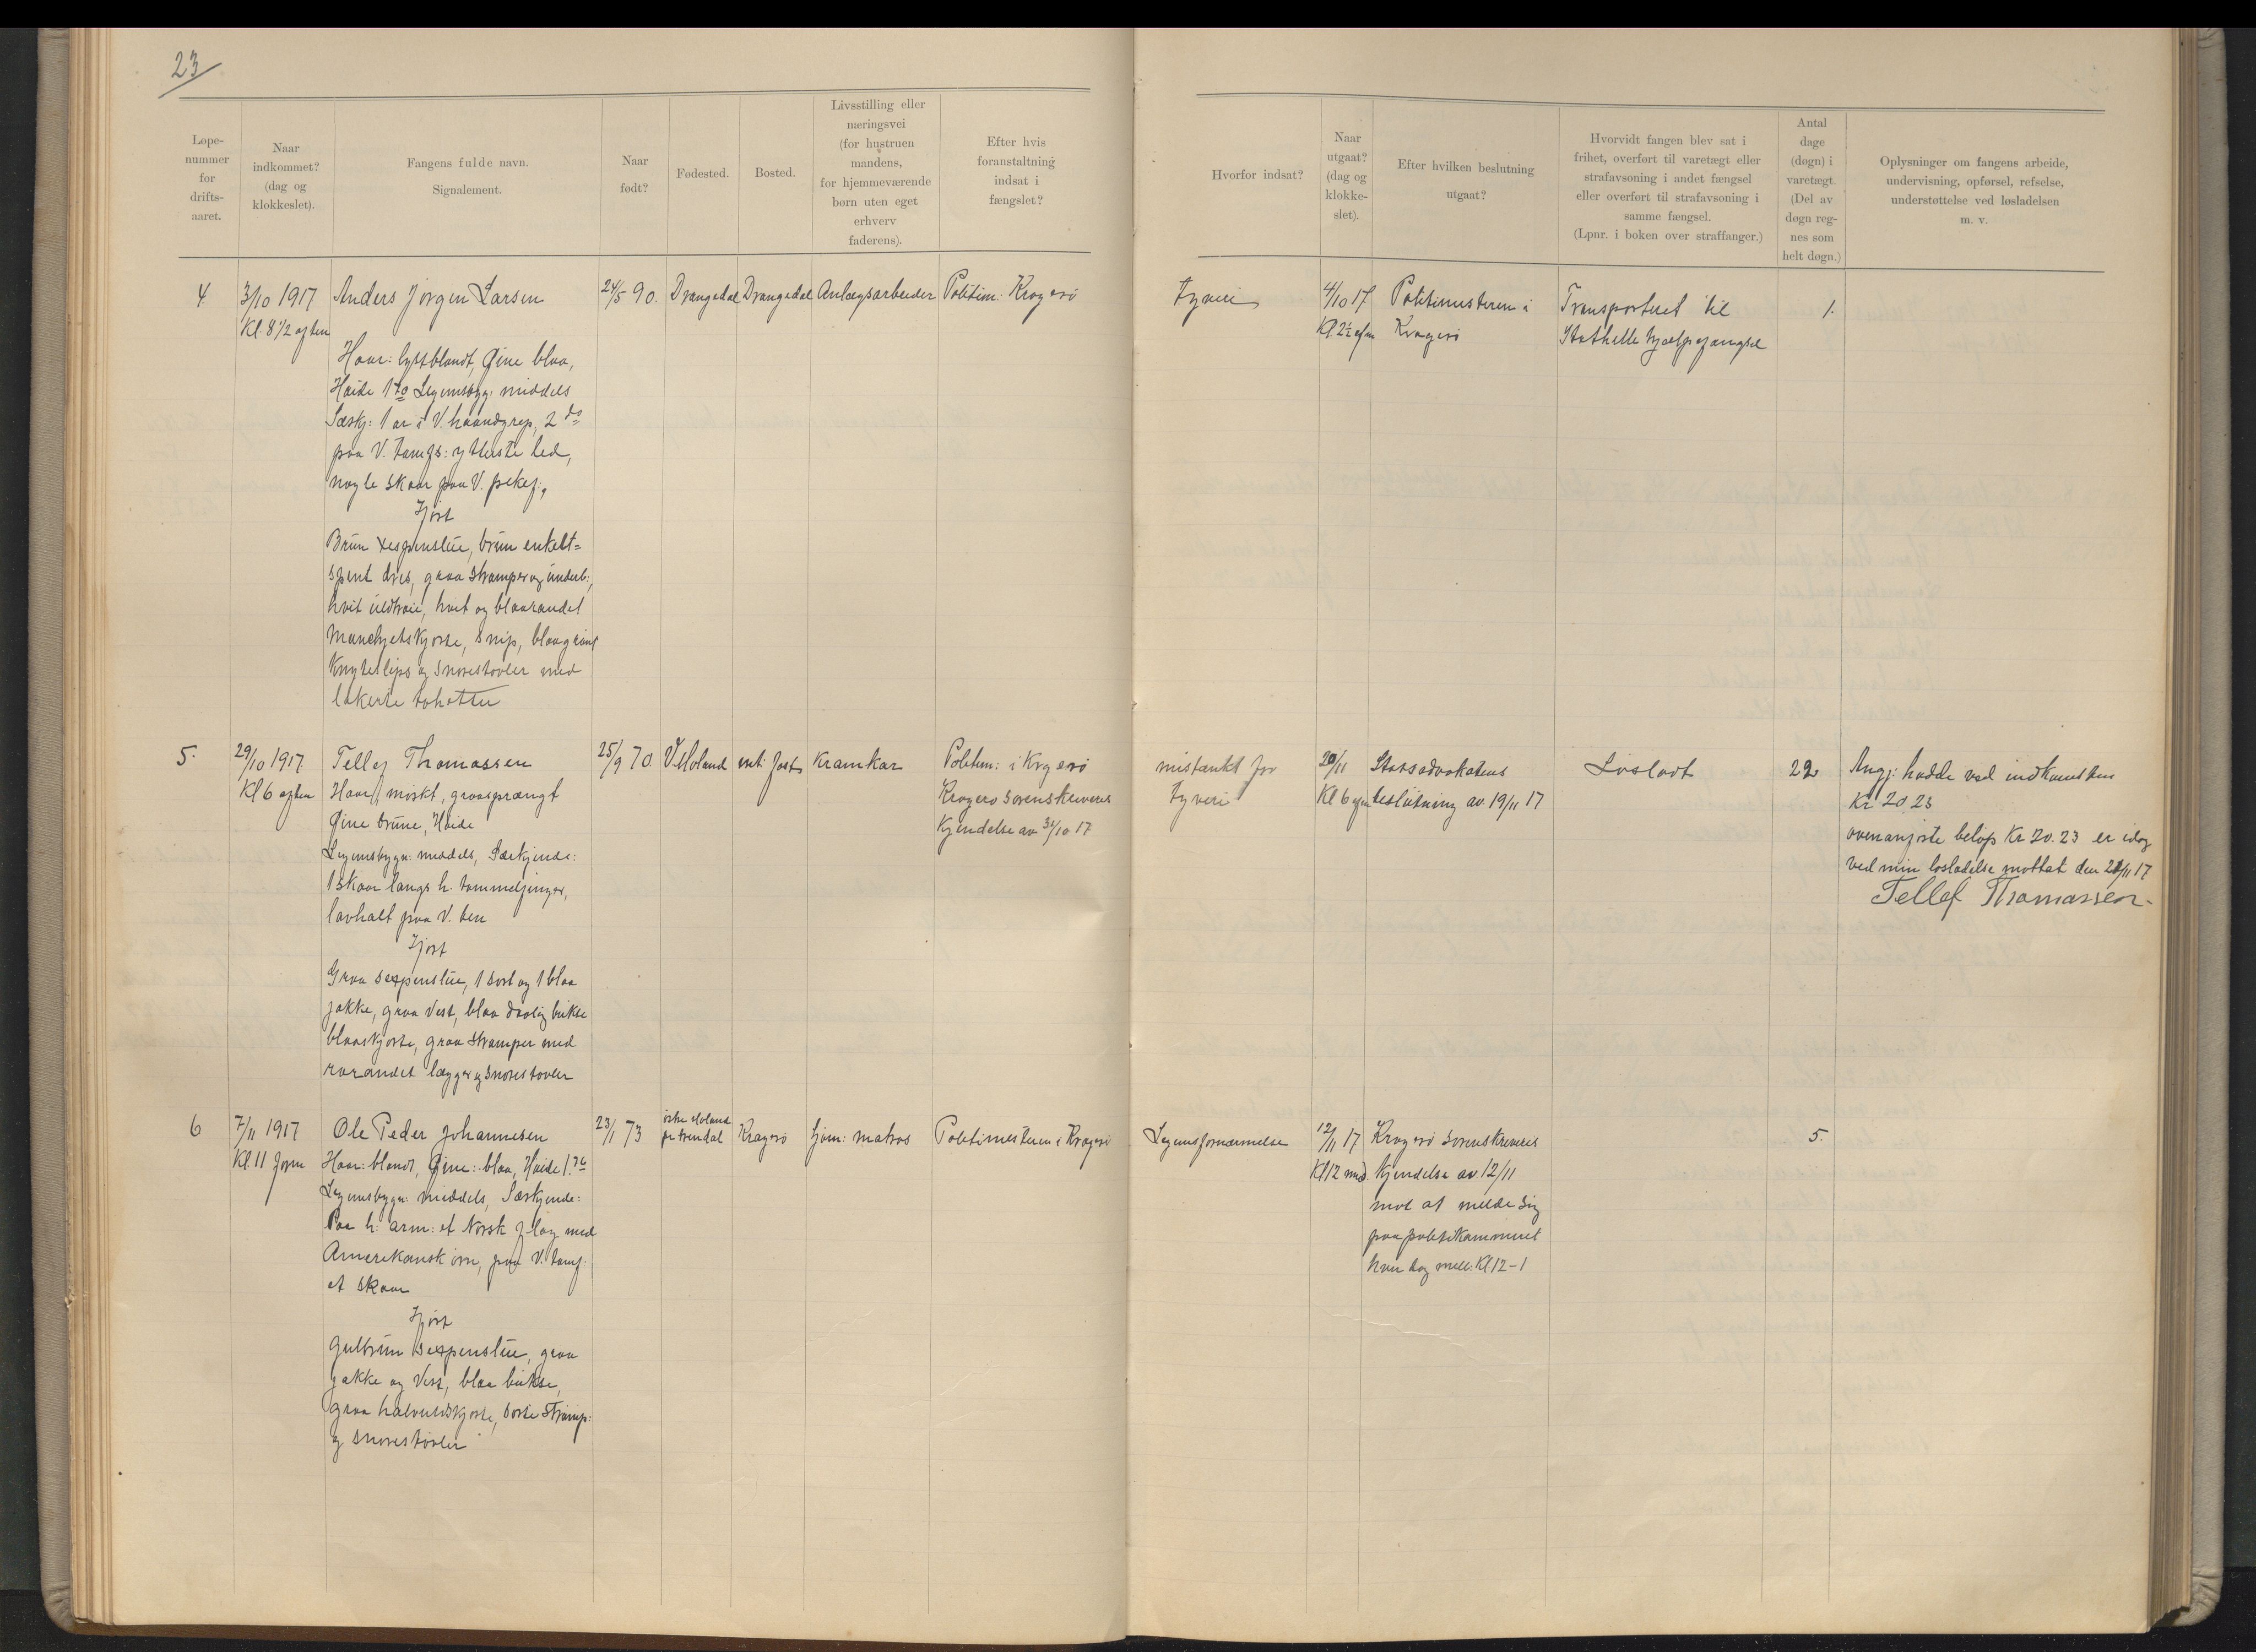 23
Løpe-
nummer
for
drifts-
aaret.
Naar
indkommet?
(dag og
klokkeslet).
Fangens fulde navn.
Signalement.
Naar
født?
Fødested.
Bosted.
Livsstilling eller
næringsvei
(for hustruen
mandens,
for hjemmeværende
børn uten eget
erhverv
faderens).
Efter hvis
foranstaltning
indsat i
fængslet?
Hvorfor indsat?
Naar
utgaat?
(dag og
klokke-
slet).
Efter hvilken beslutning
utgaat?
Hvorvidt fangen blev sat i
frihet, overført til varetægt eller
strafavsoning i andet fængsel
eller overført til strafavsoning i
samme fængsel.
(Lpnr. i boken over straffanger.)
Antal
dage
(døgn) i
varetægt.
(Del av
døgn reg-
nes som
helt døgn.)
Oplysninger om fangens arbeide,
undervisning, opførsel, refselse,
understøttelse ved løsladelsen
m. v.
4
3/10 1917
Kl. 8 1/2 aften
Anders Jørgen Larsen
Haar: lystblandt, Øine blaa,
Høide 170 Legemsbyg: middels
Særkj: 1 ar i V. haandgrep, 2 do
paa V. tomfs: ytterste led,
nogle skaar paa V. pekef:,
Iført
Brun sexpenslue, brun enkelt=
spent dres, graa strømper og underb:,
hvit uldtrøie, hvit og blaarandet
Manchetskjorte, snip, blaagrønt
Knyteslips og snorestøvler med
lakerte tohetter
24/5 90.
Drangedal
Drangedal
Anlægsarbeider
Politim: Kragerø
Tyveri
4/10 17
Kl 2 1/2 efm
Politimesteren i
Kragerø
Transporteret til
Stathelle hjælpefængsel
1.
5.
29/10 1917
Kl 6 aften
Tellef Thomassen
Haar mørkt, graasprængt
Øine brune, Høide
Legemsbygn: middels, Særkjende:
1 skaar langs h. tommelfinger,
lavhalt paa V. ben
Iført
Graa sexpenslue, 1 sort og 1 blaa
jakke, graa Vest, blaa daarlig bukse
blaaskjorte, graa strømper med
rørandet lægger og snorestøvler
25/9 70
V. Moland
int: fast
Kramkar
Politim: i Kragerø
Kragerø Sorenskriveres
Kjendelse av 31/10 17
mistænkt for
tyveri
20/11
Kl 6 efm
Statsadvokatens
beslutning av 19/11 17
Løslatt
22
Angj: hadde ved indkomsten
Kr 20 23
ovenanførte beløp Kr 20.23 er idag
ved min løsladelse mottat den 20/11 17
Tellef Thomassen.
6
7/11 1917
Kl. 11 form
Ole Peder Johannesen
Haar: blondt, Øine: blaa, Høide 1.76
Legemsbygn: middels, Særkjende:
Paa h: arm: et Norsk flag med
Amerikansk ørn, paa V. tomf:
et skaar
Iført
Gulbrun sexpenslue, graa
jakke og Vest, blaa bukse,
graa halvuldskjorte, sorte Strømp:
og snorestøvler
23/1 73
østre Moland
pr Arendal
Kragerø
fj̈om: matros
Politimesteren i Kragerø
Legemsfornærmelse
12/11 17
Kl 12 mid.
Kragerø Sorenskriveres
Kjendelse av 12/11
mot at melde sig
paa politikammeret
hver dag mell: Kl 12-1
5.